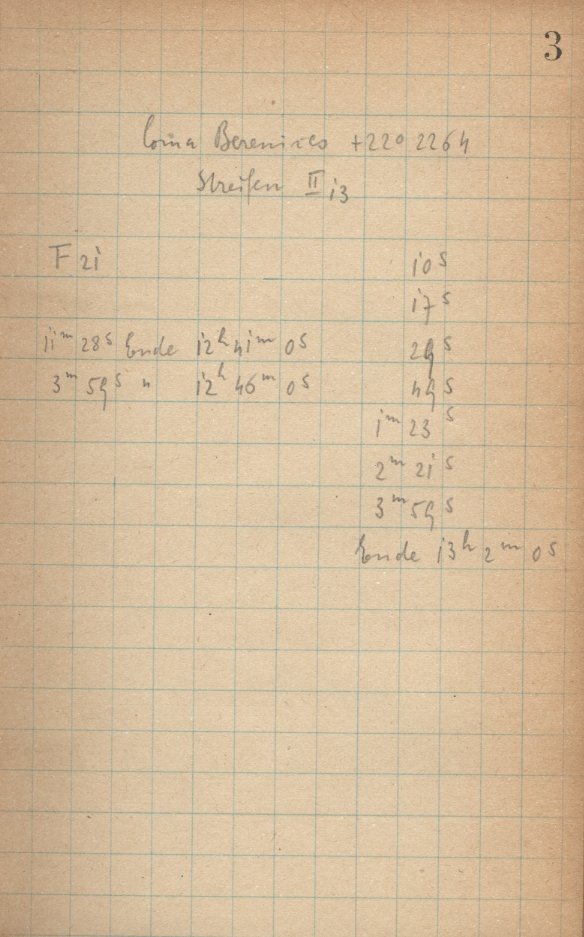 3
Coma Berenices +22° 2264
Streifen II 13
F 21
11m 28s Ende 12h 41m 0s
3m 59s " 12h 46m 0s
10s
17s
29s
49s
1m 23s
2m 21s
3m 59s
Ende 13h 2m 0s